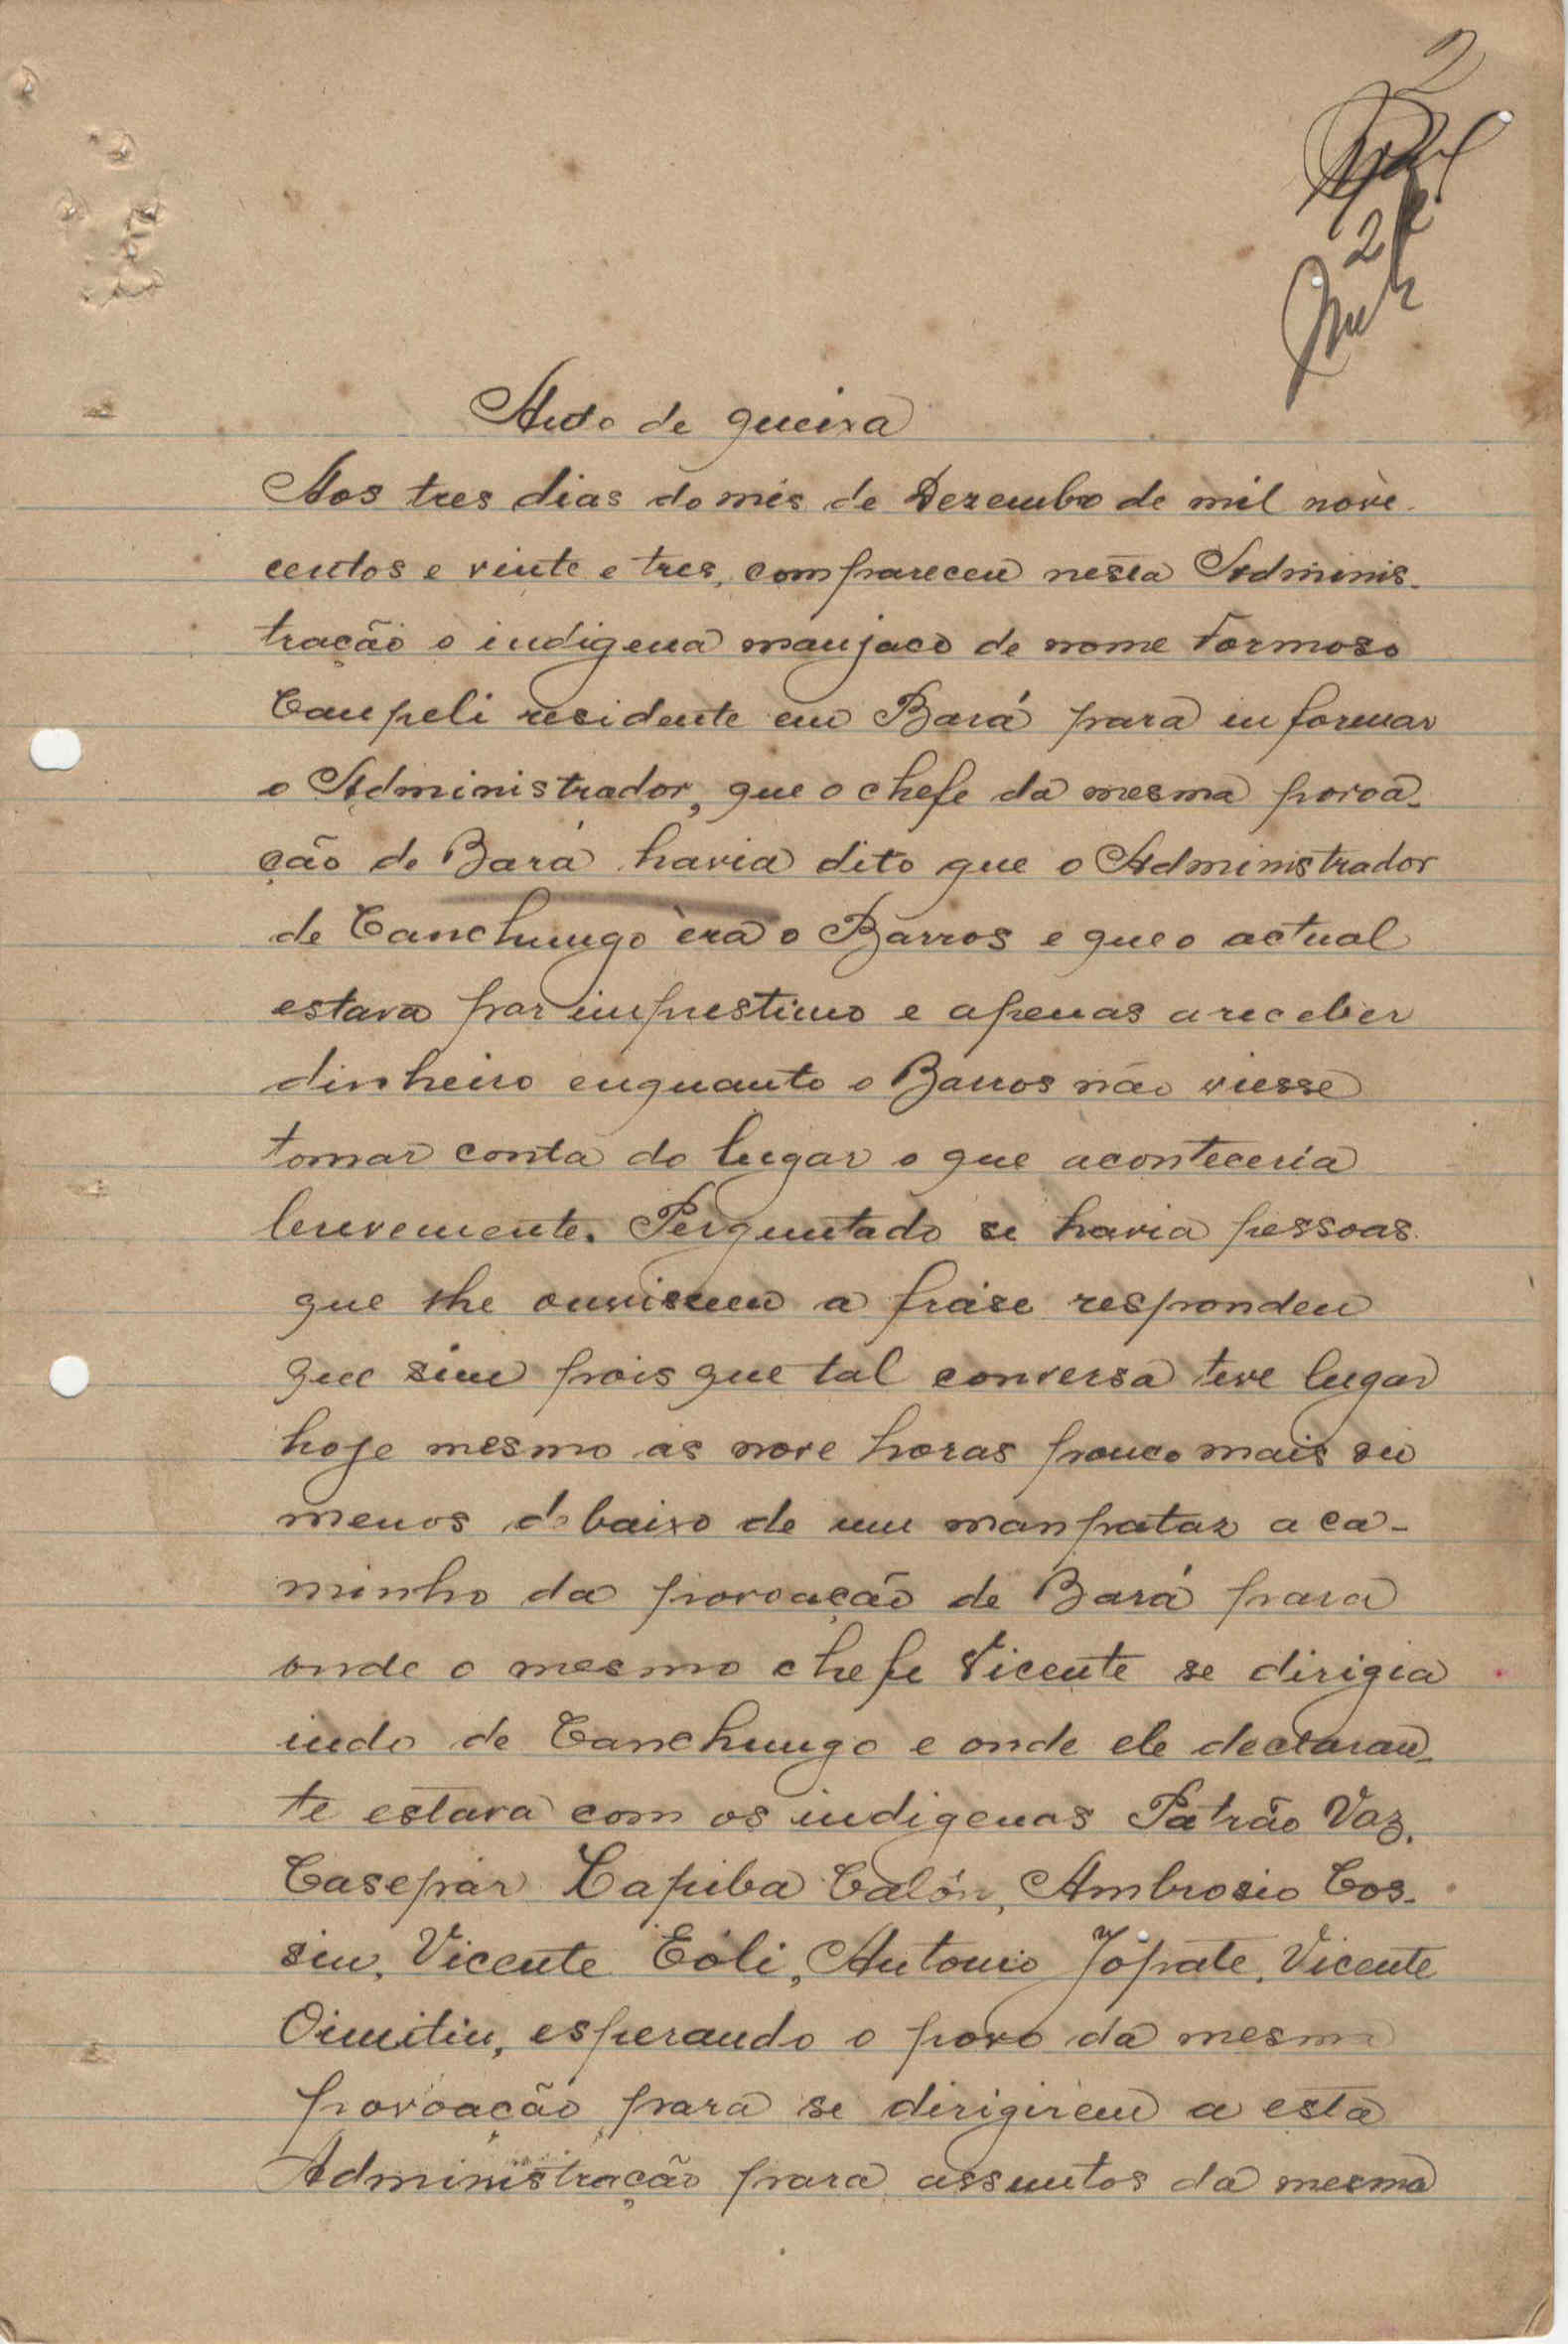 2
2
Auto de queixa
Aos tres dias do mês de Dezembro de mil nove
centos e vinte e tres, compareceu nesta Adminis-
tração o indigena manjaco de nome Formoso
Caupeli residente em Bará para informar
o Administrador, que o chefe da mesma povoa-
ção de Bará havia dito que o Administrador
de Canchungo èra o Barros e que o actual
estava por imprestimo e apenas a receber
dinheiro enquanto o Barros não viesse
tomar conta do lugar o que aconteceria
brevemente. Perguntado se havia pessoas
que lhe ouvissem a fráse respondeu
que sim pois que tal conversa teve lugar
hoje mesmo as nove horas pouco mais ou
menos debaixo de um manpataz a ca-
minho da povoação de Bará para
onde o mesmo chefe Vicente se dirigia
indo de Canchungo e onde ele declaran-
te estava com os indigenas Patrão Vaz,
Casepár Capiba Calón, Ambrosio Cos-
sin, Vicente Eóli, Antonio Jópate, Vicente
Oimitin, esperando o povo da mesma
povoação para se dirigirem a esta
Administração para assuntos da mesma